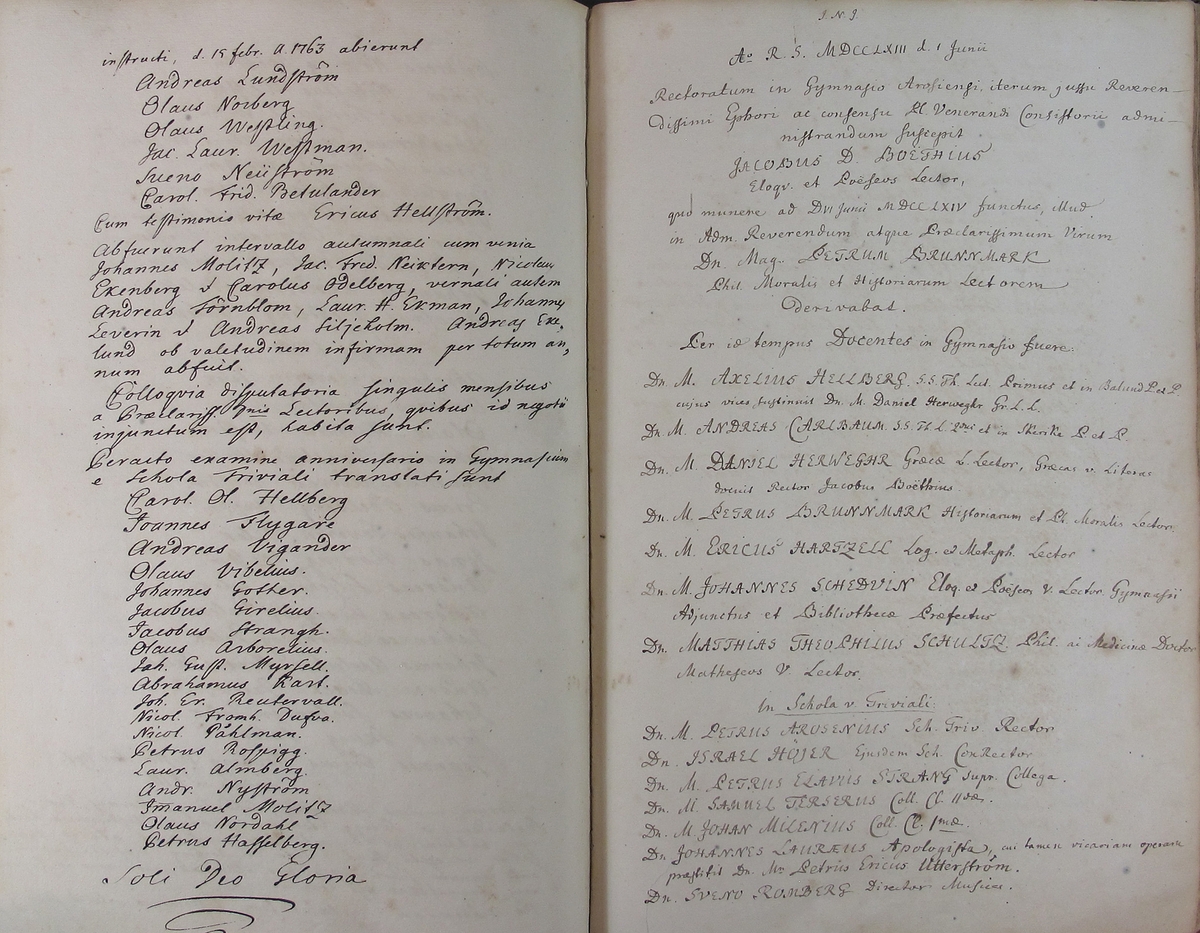 instructi, d. 15 febr. A. 1763 abierunt
Andreas Lundström
Olaus Norberg
Olaus Westling.
Jac. Laur. Westman.
Sueno Neüström
Carol. Frid. Betulander
Cum testimonio vitæ Ericus Hellström.
Abfuerunt intervallo autumnali cum venia
Johannes Molitz, Jac. Fred. Neiktern, Nicolaus
Ekenberg & Carolus Odelberg, vernali autem
Andreas Törnblom, Laur. H. Ekman, Johannes
Leverin & Andreas Siljeholm. Andreas Eke-
lund ob valetudinem infirmam per totum an-
num abfuit.
Colloqvia disputatoria singulis mensibus
a Præclariss. Dnis Lectoribus, qvibus id negotii
injunctum est, habita sunt.
Peracto examine anniversario in Gymnasium
e Schola Triviali translati sunt
Carol. Ol. Hellberg
Joannes Flygare
Andreas Vigander
Olaus Vibelius.
Johannes Gother.
Jacobus Girelius.
Jacobus Strangh.
Olaus Arborelius.
Joh. Gust. Myrsell.
Abrahamus Kart.
Joh. Er. Reutervall.
Nicol. Fromh. Dufva.
Nicol. Påhlman.
Petrus Rospigg.
Laur. Almberg.
Andr. Nyström
Imanuel Molitz
Olaus Nordahl
Petrus Hasselberg.
Soli Deo Gloria
I. N. J.
Ao R. S. MDCCLXIII d. 1 Junii
Rectoratum in Gymnasio Arosiensi, iterum jussu Reveren-
dissimi Ephori ac consensu Pl. Venerandi Consistorii admi-
nistrandum suscepit
JACOBUS D. BOËTHIUS
Eloqv. et Poëseos Lector,
quo munere ad D VI Junii MDCCLXIV functus, illud
in Adm. Reverendum atque Præclarissimum Virum
Dn. Mag. PETRUM BRUNNMARK
Phil. Moralis et Historiarum Lectorem
Derivabat.
Per id tempus Docentes in Gymnasio fuere:
Dn. M. AXELIUS HELLBERG. S.S. Th. Lect. Primus et in Balund P. et P.
cujus vices sustinuit Dn. M. Daniel Herweghr Gr. L. L.
Dn. M. ANDREAS CARLBAUM. S.S. Th. L. 2dus et in Skerike P. et P.
Dn. M. DANIEL HERWEGHR Græcæ L. Lector, Græcas v. Literas
docuit Rector Jacobus Boëthius
Dn. M. PETRUS BRUNNMARK Historiarum et Ph. Moralis Lector.
Dn. M. ERICUS HARTZELL Log. et Metaph. Lector
Dn. M. JOHANNES SCHEDVIN Eloq. et Poëseos V. Lector. Gymnasii
Adjunctus et Bibliothecæ Præfectus
Dn. MATTHIAS THEOPHILUS SCHULTZ. Phil. ac Medicinæ Doctor
Matheseos V. Lector.
In Schola v. Triviali:
Dn. M. PETRUS AROSENIUS Sch. Triv. Rector
Dn. ISRAEL HÖJER Ejusdem Sch. ConRector
Dn. M. PETRUS ELAVIUS STRANG supr. Collega.
Dn. M. SAMUEL TERSERUS Coll. Cl. IIdæ.
Dn. M. JOHAN MILENIUS Coll. Cl. Imæ.
Dn. JOHANNES LAURÆUS Apologista, cui tamen vicariam operam
præstitit Dn. Mr Petrus Ericus Utterström.
Dn. SVENO ROMBERG Director Musices.